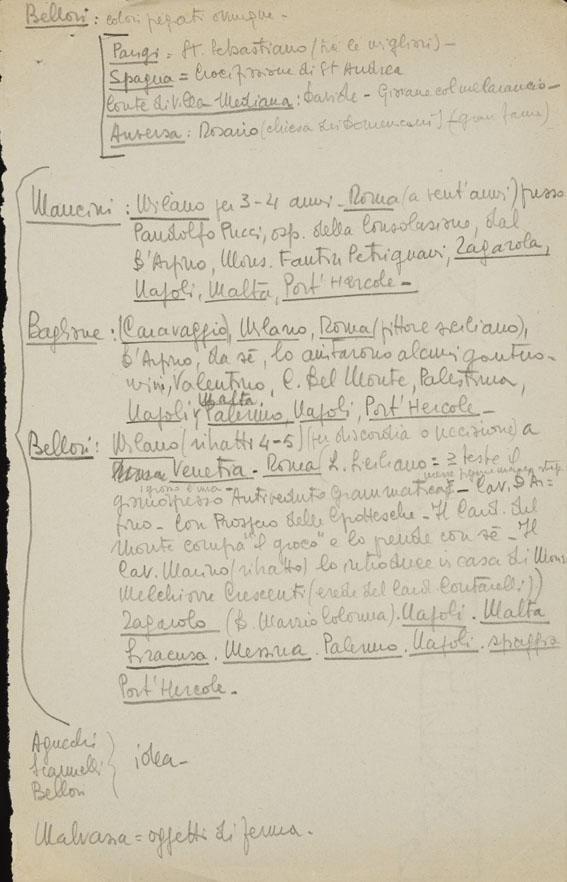 Bellori: colori pagati ovunque -
Parigi = St. Sebastiano (tra le migliori) -
Spagna = Crocifissione di St Andrea
Conte di Villa Mediana: Davide - Giovane col melarancio -
Anversa: Rosario (chiesa dei Domenicani) (gran fama)
Mancini: Milano per 3-4 anni - Roma (a vent'anni) presso
Pandolfo Pucci, osp. della Consolazione, dal
D'Arpino, Mons. Fantin Petrignani, Zagarola,
Napoli, Malta, Port'Hercole -
Baglione: (Caravaggio), Milano, Roma (pittore siciliano),
D'Arpino, da sè, lo aiutarono alcuni gentiluo-
mini, Valentino, C. Del Monte, Palestrina,
Malta
Napoli, Palermo, Napoli, Port'Hercole -
Bellori: Milano (ritratti 4-5) (per discordia o uccisione) a
Venetia - Roma (L. Siciliano = 3 teste il
mezze figure
giorno presso Antiveduto Grammatica - Cav. D'Ar=
pino - Con Prospero delle Grottesche - Il Card. del
Monte compra "il gioco" e lo prende con sè - Il
Cav. Marino (ritratto) lo introduce in casa di Mons
Melchiorre Crescenti (erede del Card. Contarelli))
Zagarolo (D. Marzio Colonna). Napoli. Malta
Siracusa. Messina. Palermo. Napoli. spiaggia
Port'Hercole -
Agucchi
Scannelli
Bellori
idea -
Malvasia = oggetti di ferma.